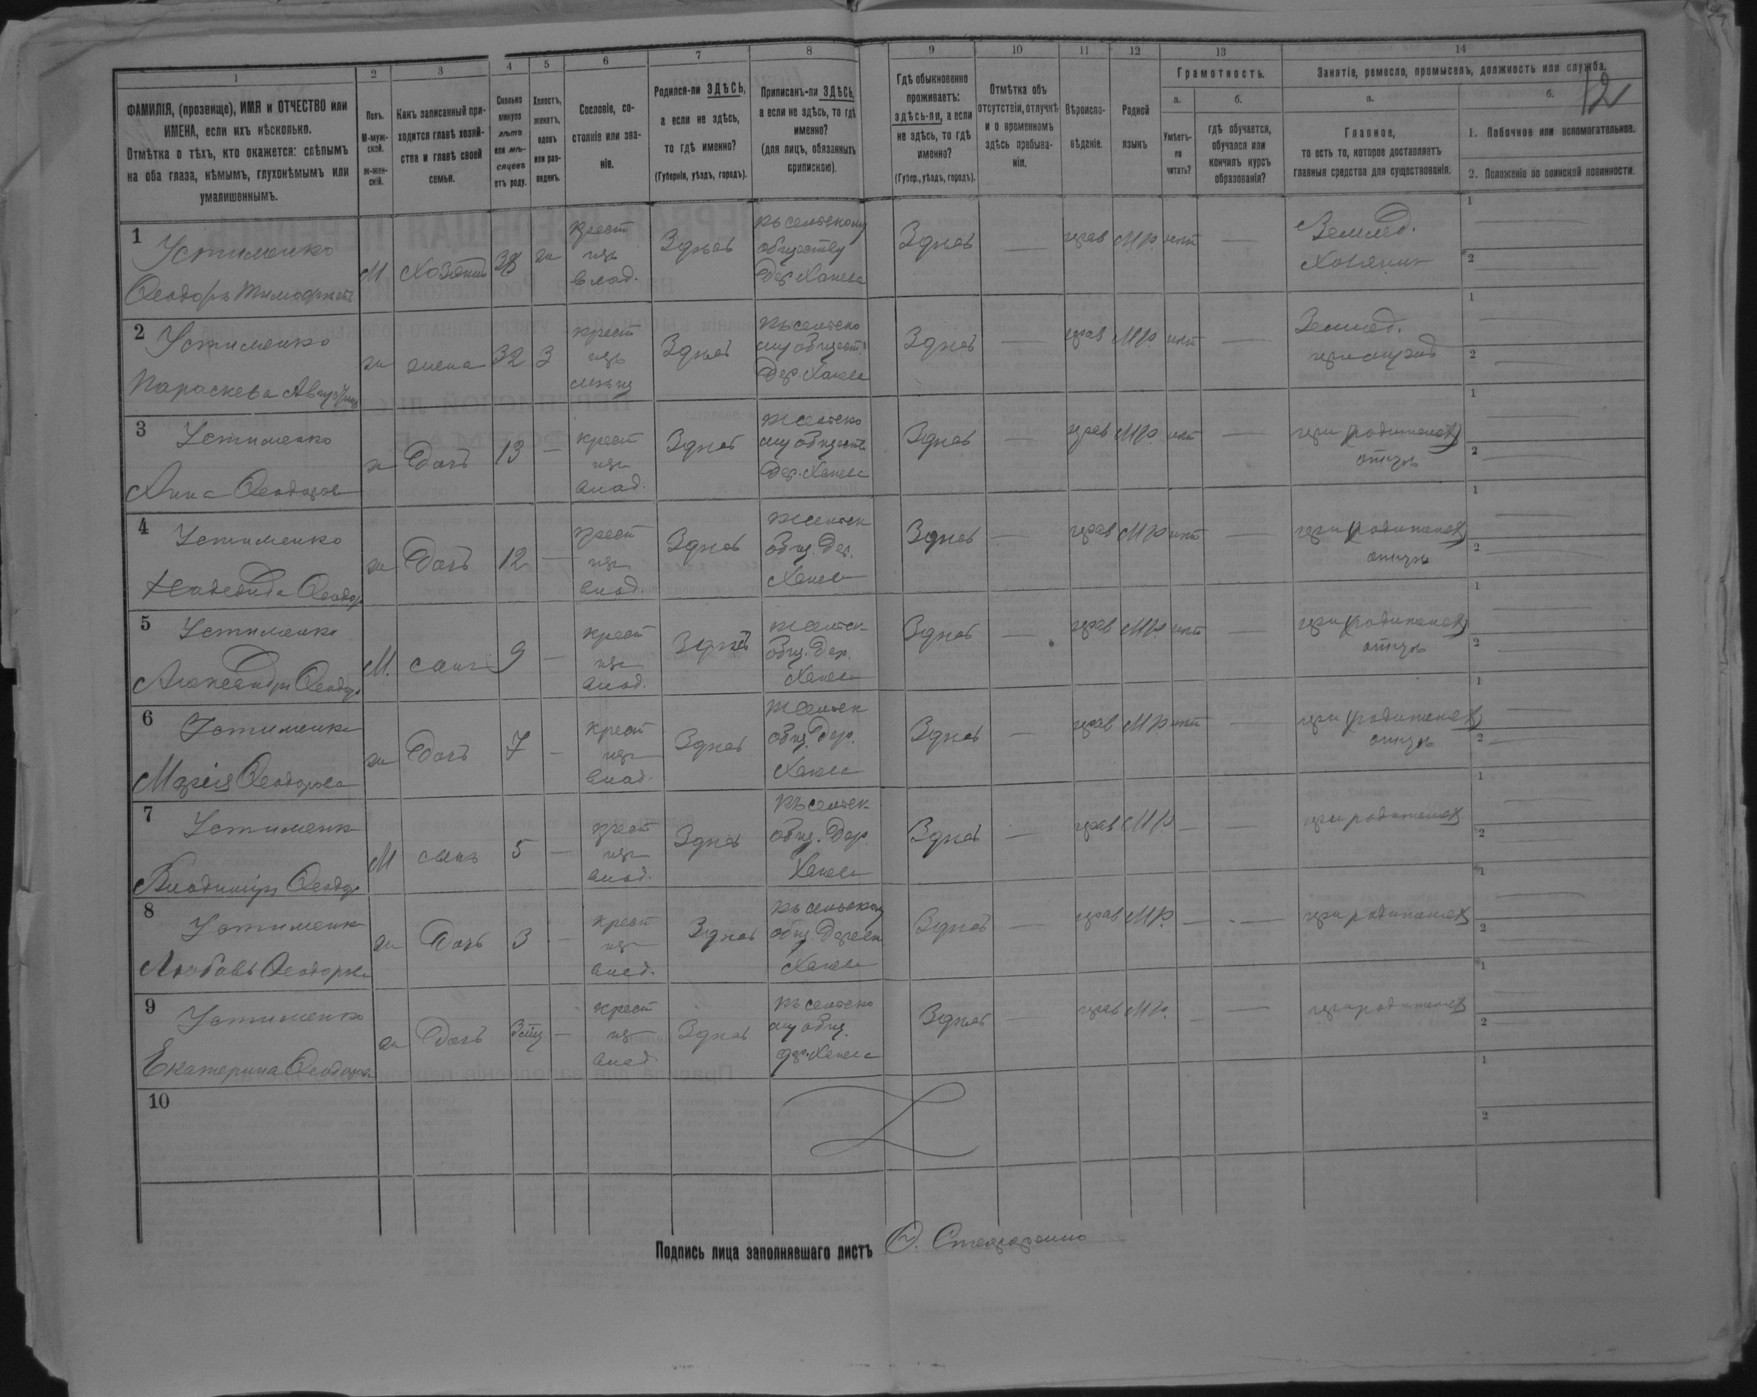 12
1 2 3 4 5 6 7 8 9 10 11 12 13 14
ФАМИЛІЯ, (прозвище), ИМЯ и ОТЧЕСТВО или
ИМЕНА, если ихъ нѣсколько.
Отмѣтка о тѣхъ, кто окажется: слѣпымъ
на оба глаза, нѣмымъ, глухонѣмымъ или
умалишеннымъ.
Полъ.
М-муж-
ской.
ж-жен-
скій.
Какъ записанный при-
ходится главѣ хозяй-
ства и главѣ своей
семьи.
Сколько
минуло
лѣтъ
или мѣ-
сяцевъ
отъ роду.
Холостъ,
женатъ,
вдовъ
или раз-
веденъ.
Сословіе, со-
стояніе или зва-
ніе.
Родился-ли ЗДѢСЬ,
а если не здѣсь,
то гдѣ именно?
(Губернія, уѣздъ, городъ).
Приписанъ-ли ЗДѢСЬ,
а если не здѣсь, то гдѣ
именно?
(для лицъ, обязанныхъ
припискою).
Гдѣ обыкновенно
проживаетъ:
здѣсь-ли, а если
не здѣсь, то гдѣ
именно?
(Губер., уѣздъ, городъ).
Отмѣтка объ
отсутствіи, отлучкѣ
и о временномъ
здѣсь пребыва-
ніи.
Вѣроиспо-
вѣданіе.
Родной
языкъ
Грамотность.
а.
Умѣетъ-
ли
читать?
б.
гдѣ обучается,
обучался или
кончилъ курсъ
образованія?
Занятіе, ремесло, промыселъ, должность или служба.
а.
Главное,
то есть то, которое доставляетъ
главныя средства для существованія.
б.
1. Побочное или вспомогательное.
2. Положеніе по воинской повинности.
1 Устименко
Ѳеодоръ Тимофеев
М хозяинъ 38 ж
крест
изъ
влад.
Здѣсь
къ сельскому
обществу
Дер
Здѣсь — прав МР нѣт —
Землед.
хозяин
1
2
2 Устименко
Параскева
ж жена 32 З
крест
изъ
Здѣсь
къ сельско
му общест
Дер.
Здѣсь — прав МР. нѣт —
Землед.
при муже
1
2
3 Устименко
Анна Ѳеодоров
ж дочь 13 —
крест
изъ
влад.
Здѣсь
к сельско
му общест
Дер.
Здѣсь — прав МР. нѣт —
при родителях
отцѣ
1
2
4 Устименко
Надежда Ѳеодор
ж дочь 12 —
крест
изъ
влад.
Здѣсь
к сельск
общ. Дер.
Здѣсь — прав МР нѣт —
при родителях
отцѣ
1
2
5 Устименко
Александръ Ѳеодор
М. сынъ 9 —
крест
изъ
влад.
Здѣсь
к сельск
общ. Дер.
Здѣсь — прав МР. нѣт —
при родителях
отцѣ
1
2
6 Устименко
Марія Ѳеодорова
ж дочь 7 —
крест
изъ
влад.
Здѣсь
к сельск
общ. Дер.
Здѣсь — прав МР нѣт —
при родителях
отцѣ
1
2
7 Устименк
Владиміръ Ѳеодор
М сынъ 5 —
крест
изъ
влад.
Здѣсь
къ сельск
общ. Дер.
Здѣсь — прав МР — —
при родителях
1
2
8 Устименк
Любовь Ѳеодоров
ж дочь 3 —
крест
изъ
влад.
Здѣсь
къ сельском
общ. Дерев
Здѣсь — прав МР. — —
при родителях
1
2
9 Устименко
Екатерина Ѳеодоров
ж дочь —
крест
изъ
влад.
Здѣсь
къ сельско
му общ.
дер.
Здѣсь — прав МР. — —
при родителях
1
2
10
1
2
Подпись лица заполнявшаго листъ